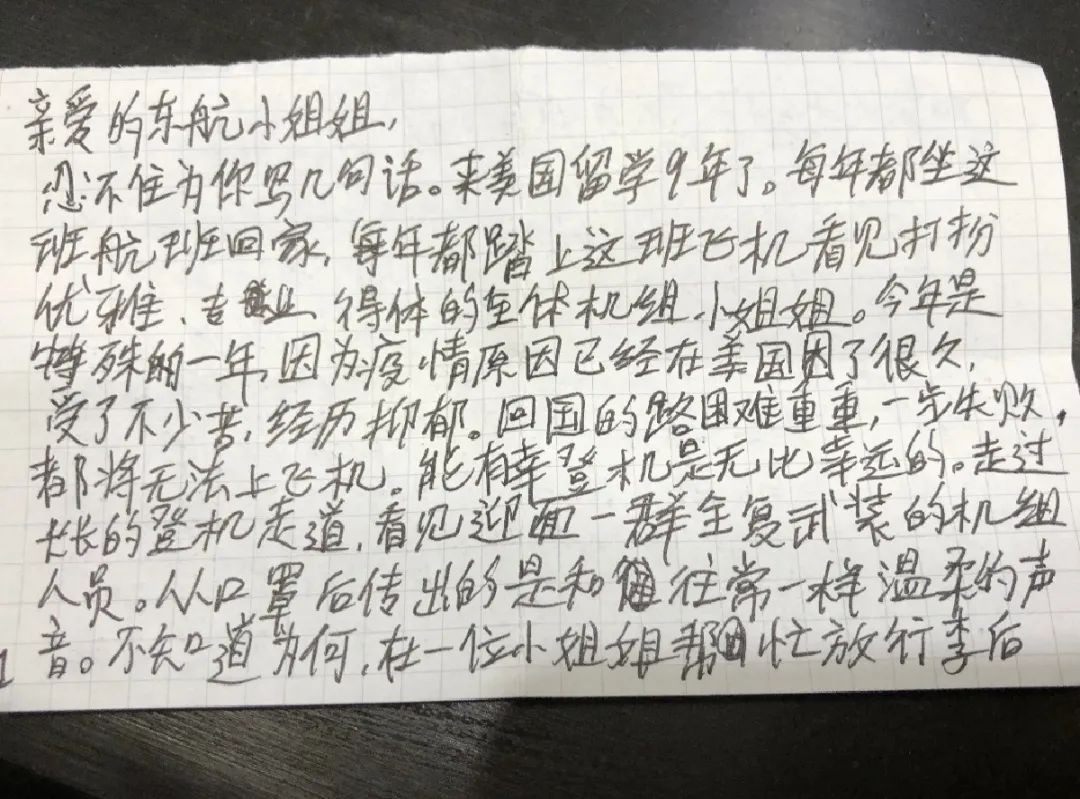 亲爱的东航小姐姐,
忍不住为你写几句话。来美国留学9年了。每年都坐这
班航班回家,每年都踏上这班飞机看见打扮
优雅、专业、得体的全体机组小姐姐。今年是
特殊的一年,因为疫情原因已经在美国困了很久,
受了不少苦,经历抑郁。回国的路困难重重,一步失败,
都将无法上飞机。能有幸登机是无比幸运的。走过
长长的登机走道,看见迎面一群全复武装的机组
人员。从口罩后传出的是和往常一样温柔的声
音。不知道为何,在一位小姐姐帮忙放行李后
1